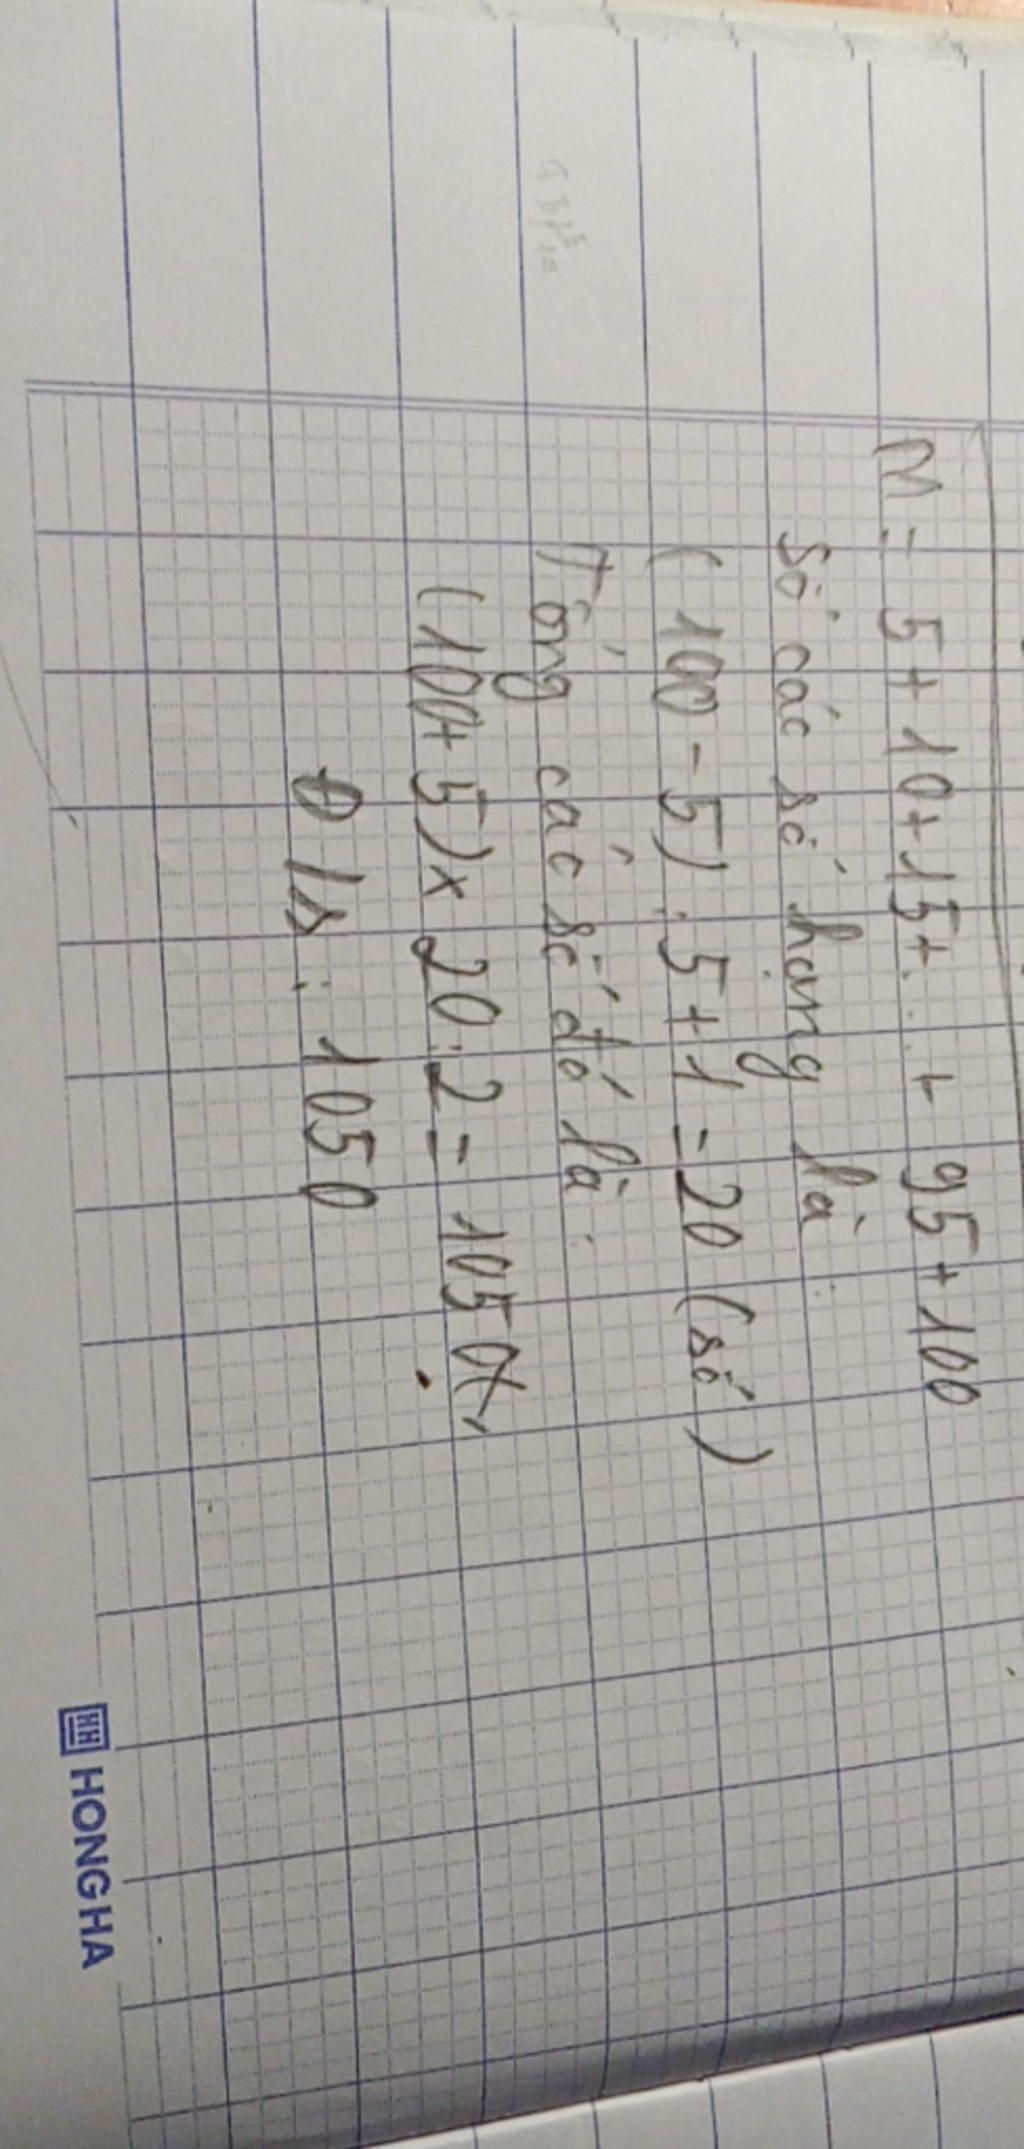 M = 5 + 10 + 15 + ... + 95 + 100
Số các số hạng là:
(100 - 5) : 5 + 1 = 20 (số)
Tổng các số đó là:
(100 + 5) x 20 : 2 = 1050
Đ/s : 1050
HH HONG HA